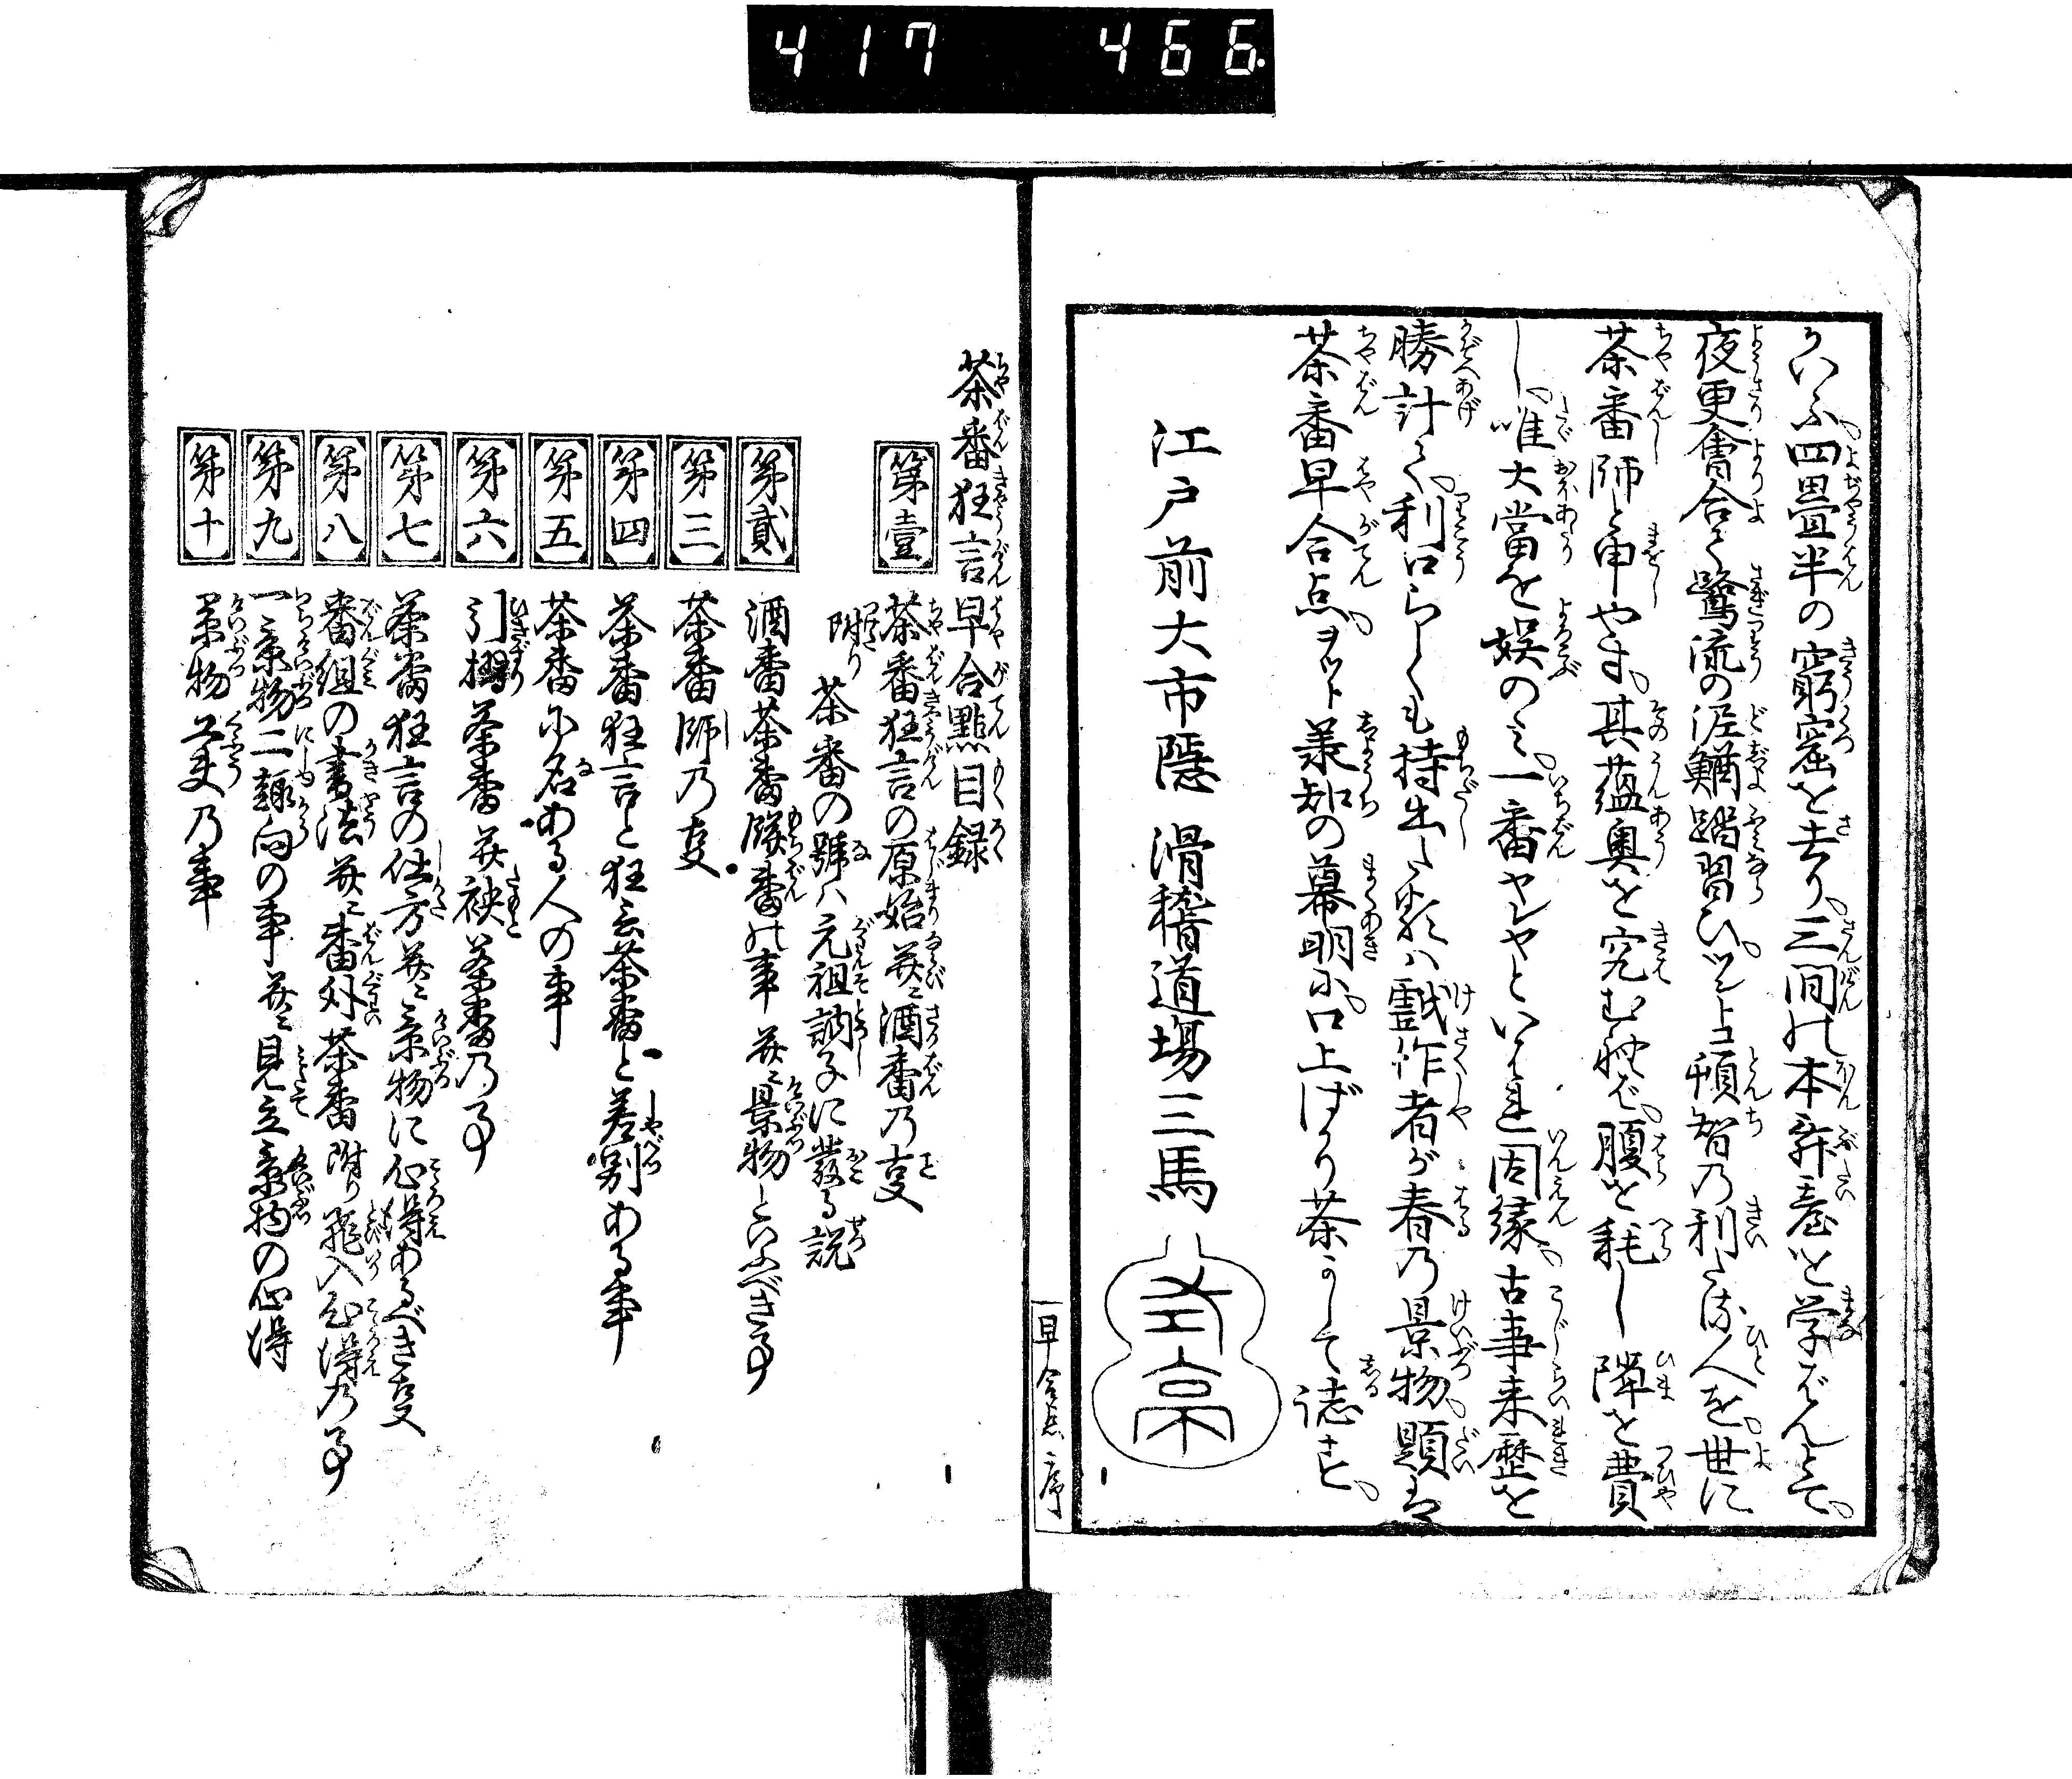 417 466.
四畳半の窮窟を去り、三間の本舞臺を学ばんとて、
夜更會合て鷺流の泥鰌踏習ひ、頓智の利た人を、世に
茶番師と申やす、其蘊奥を究むれば、腹を耗し隙を費
し、唯大當を娯のみ、一番ヤンヤといはれ因縁、古事来歴を
勝計て、利口らしくも持出た趣は戯作者が春の景物、題は
茶番早合点、ヲツト兼知の幕明に、口上ばかり茶かして誌す、
江戸前大市隠 滑稽道場三馬
早合点 序
茶番狂言早合點目録
第壹 茶番狂言の原始并ニ酒番の事
附り 茶番の號は元祖訥子に發る説
第貳 酒番茶番餅番の事 并ニ景物といふべき事
第三 茶番師の事
第四 茶番狂言と狂言茶番と差別ある事
第五 茶番に名ある人の事
第六 引摺茶番并袂茶番の事
第七 茶番狂言の仕方并ニ景物に心得あるべき事
第八 番組の書法并ニ番外茶番 附り飛入心得の事
第九 一景物二趣向の事 并ニ見立景物の心得
第十 景物工夫の事